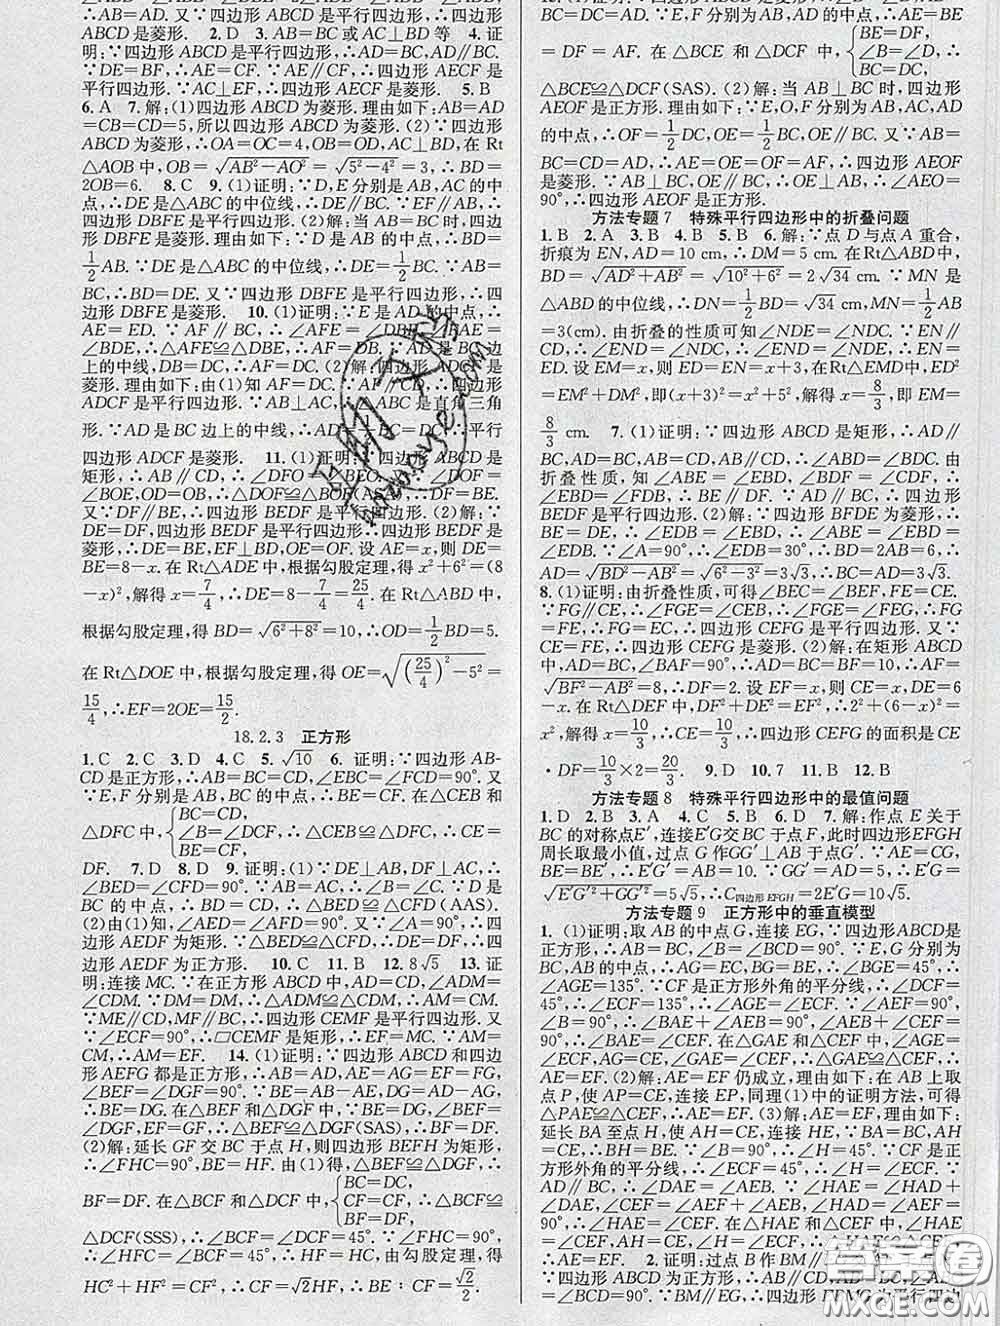 CBD是菱形. 2. D 3. AB=BC或AC⊥BD等 4. 证
明:∵四边形ABCD是平行四边形,∴AD=BC,AD∥BC.
∵DE=BF,∴AE=CF.∵AE∥CF,∴四边形AECF是
平行四边形.∵AC⊥EF,∴四边形AECF是菱形. 5. B
6. A 7. 解:(1)四边形ABCD为菱形.理由如下:AB=AD
=CB=CD=5,所以四边形ABCD为菱形.(2)∵四边形
ABCD为菱形,∴OA=OC=4,OB=OD,AC⊥BD,在Rt
△AOB中,OB=√(AB²-AO²)=√(5²-4²)=3,∴BD=
2OB=6. 8. C 9. (1)证明:∵D,E分别是AB,AC的中
点,∴DE是△ABC的中位线,∴DE∥BC.∵EF∥AB,∴
四边形DBFE是平行四边形.(2)解:当AB=BC时,四边
形DBFE是菱形.理由如下:∵D是AB的中点,∴BD=
1/2AB.∵DE是△ABC的中位线,∴DE=1/2BC.∵AB=
BC,∴BD=DE.又∵四边形DBFE是平行四边形,∴四
边形DBFE是菱形. 10. (1)证明:∵E是AD的中点,∴
AE=ED.∵AF∥BC,∴∠AFE=∠DBE,∠FAE=
∠BDE,∴△AFE≌△DBE,∴AF=DB.∵AD是BC边
上的中线,∴DB=DC,∴AF=DC.(2)解:四边形
ADCF是菱形.理由如下:由(1)知AF=DC.∵AF∥BC,∴四边形
ADCF是平行四边形.∵AB⊥AC,∴△ABC是直角三角
形.∵AD是BC边上的中线,∴AD=1/2BC=DC,∴平行
四边形ADCF是菱形. 11. (1)证明:∵四边形ABCD是
矩形,∴AB∥CD,∴∠DFO=∠BEO.∵∠DOF=
∠BOE,OD=OB,∴△DOF≌△BOE(AAS),∴DF=BE.
又∵DF∥BE,∴四边形BEDF是平行四边形.(2)解:∵
DE=DF,四边形BEDF是平行四边形,∴四边形BEDF是
菱形,∴DE=BE,EF⊥BD,OE=OF.设AE=x,则DE=
BE=8-x.在Rt△ADE中,根据勾股定理,得x²+6²=(8
-x)²,解得x=7/4,∴DE=8-7/4=25/4.在Rt△ABD中,
根据勾股定理,得BD=√(6²+8²)=10,∴OD=1/2BD=5.
在Rt△DOE中,根据勾股定理,得OE=√((25/4)²-5²)=
15/4,∴EF=2OE=15/2.
18.2.3 正方形
1. C 2. C 3. D 4. C 5. √10 6. 证明:∵四边形AB-
CD是正方形,∴AB=BC=CD,∠EBC=∠FCD=90°.又
∵E,F分别是AB,BC的中点,∴BE=CF.在△CEB和
△DFC中,{BC=CD, ∠B=∠DCF, BE=CF, ∴△CEB≌△DFC,∴CE=
DF. 7. D 8. D 9. 证明:(1)∵DE⊥AB,DF⊥AC,∴
∠BED=∠CFD=90°.∵AB=AC,∴∠B=∠C.∵D是
BC的中点,∴BD=CD,∴△BED≌△CFD(AAS).
(2)由(1)知,∠AED=∠AFD=90°.∵∠A=90°,∴四
边形AEDF为矩形.∵△BED≌△CFD,∴DE=DF,∴四
边形AEDF为正方形. 10. C 11. B 12. 8√5 13. 证
明:连接MC.∵在正方形ABCD中,AD=CD,∠ADM=
∠CDM.又∵DM=DM,∴△ADM≌△CDM,∴AM=CM.
∵ME∥CD,MF∥BC,∴四边形CEMF是平行四边形.又
∵∠ECF=90°,∴▱CEMF是矩形,∴EF=MC.又∵AM=
CM,∴AM=EF. 14. (1)证明:∵四边形ABCD和四边
形AEFG都是正方形,∴AB=AD,AE=AG=EF=FG,
∠BEF=∠DGF=90°.∵BE=AB-AE,DG=AD-AG,
∴BE=DG.在△BEF和△DGF中,∵BE=DG,∠BEF=
∠DGF,EF=GF,∴△BEF≌△DGF(SAS),∴BF=DF.
(2)解:延长GF交BC于点H,则四边形BEFH为矩形,
∴∠FHC=90°,BE=HF.由(1)得,△BEF≌△DGF,∴
BF=DF.在△BCF和△DCF中,{BC=DC, CF=CF, BF=DF, ∴△BCF≌
△DCF(SSS),∴∠BCF=∠DCF=45°.∵∠FHC=90°,
∴∠HFC=∠BCF=45°,∴HF=HC.由勾股定理,得
HC²+HF²=CF²,∴CF=√2HF,∴BE∶CF=√2/2.
BC=DC=AD.∵E,F分别为AB,AD的中点,∴AE=BE
=DF=AF.在△BCE和△DCF中,{BE=DF, ∠B=∠D, BC=DC,
∴△BCE≌△DCF(SAS).(2)解:当AB⊥BC时,四边形
AEOF是正方形.理由如下:∵E,O,F分别为AB,AC,AD
的中点,∴OF=1/2DC,OE=1/2BC,OE∥BC.又∵AB=
BC=CD=AD,∴AE=OE=OF=AF,∴四边形AEOF
是菱形.∵AB⊥BC,OE∥BC,∴OE⊥AB,∴∠AEO=
90°,∴四边形AEOF是正方形.
方法专题7 特殊平行四边形中的折叠问题
1. B 2. A 3. B 4. B 5. B 6. 解:∵点D与点A重合,
折痕为EN,AD=10 cm,∴DM=5 cm.在Rt△ABD中,
BD=√(AD²+AB²)=√(10²+6²)=2√34 cm.∵MN是
△ABD的中位线,∴DN=1/2BD=√34 cm,MN=1/2AB
=3(cm).由折叠的性质可知∠NDE=∠NDC.∵EN∥
CD,∴∠END=∠NDC,∴∠END=∠NDE,∴EN=
ED.设EM=x,则ED=EN=x+3,在Rt△EMD中,ED²=
EM²+DM²,即(x+3)²=x²+5²,解得x=8/3,即EM=
8/3 cm. 7. (1)证明:∵四边形ABCD是矩形,∴AD∥
BC,AB∥CD,∴∠ABD=∠CDB,∠EDB=∠DBC.由
折叠性质,知∠ABE=∠EBD,∠CDF=∠FDB,∴
∠EBD=∠FDB,∴BE∥DF.∵ED∥BF,∴四边形
BEDF是平行四边形.(2)解:∵四边形BFDE为菱形,∴
BE=DE,∴∠EBD=∠EDB,∵∠EBD=∠ABE,
∴∠EDB=∠ABE.∵∠A=90°,∴∠EDB=30°,∴BD=2AB=6,∴
AD=√(BD²-AB²)=√(6²-3²)=3√3,∴AD=3√3.
8. (1)证明:由折叠性质,可得∠BEC=∠BEF,FE=CE.
∵FG∥CE,∴∠FGE=∠CEB,∴∠FGE=∠FEG,∴FG=
FE,∴FG=EC,∴四边形CEFG是平行四边形.又∵
CE=FE,∴四边形CEFG是菱形.(2)解:在矩形ABCD
中,∵AB=6,AD=10,∠BAF=90°,∴AD=BC=BF=10,∴AF=
√(BF²-AB²)=8,∴DF=2.设EF=x,则CE=x,DE=6
-x.在Rt△DEF中,DF²+DE²=EF²,∴2²+(6-x)²=
x²,解得x=10/3,∴CE=10/3,∴四边形CEFG的面积是CE
·DF=10/3×2=20/3. 9. D 10. 7 11. B 12. B
方法专题8 特殊平行四边形中的最值问题
1. D 2. B 3. C 4. A 5. B 6. D 7. 解:作点E关于
BC的对称点E′,连接E′G交BC于点F,此时四边形EFGH
周长取最小值,过点G作GG′⊥AB于点G′.∵AE=CG,
BE=BE′,∴E′G′=AB=10.∵GG′=AD=5,∴E′G=
√(E′G′²+GG′²)=5√5,∴C四边形EFGH=2E′G=10√5.
方法专题9 正方形中的垂直模型
1. (1)证明:取AB的中点G,连接EG,∵四边形ABCD是
正方形,∴AB=BC,∠B=∠BCD=90°.∵E,G分别为
BC,AB的中点,∴AG=EC,BG=BE,∴∠BGE=45°,
∴∠AGE=135°.∵CF是正方形外角的平分线,∴∠DCF=
45°,∴∠ECF=135°,∴∠AGE=∠ECF.∵∠AEF=90°,
∠B=90°,∴∠BAE+∠AEB=90°,∠AEB+∠CEF=
90°,∴∠BAE=∠CEF.在△GAE和△CEF中,∵∠AGE
=∠ECF,AG=CE,∠GAE=∠CEF,∴△GAE≌△CEF,∴
AE=EF.(2)解:AE=EF仍成立,理由如下:在AB上取
点P,使AP=CE,连接EP,同理(1)中的证明方法,可得
△PAE≌△CEF,∴AE=EF.(3)AE=EF.理由如下:
延长BA至点H,使AH=CE,连接HE,∵BA=BC,AH=
CE,∴BH=BE,∴∠H=45°.∵CF是正
方形外角的平分线,∴∠ECF=45°,∴∠H=∠ECF.∵
AD∥BE,∴∠DAE=∠AEB.∵∠HAE=∠HAD+
∠DAE,∠CEF=∠AEF+∠AEB,∠HAD=∠AEF=
90°,∴∠HAE=∠CEF.在△HAE和△CEF中,∠HAE
=∠CEF,AH=CE,∠H=∠ECF,∴△HAE≌△CEF,
∴AE=EF. 2. 证明:过点B作BM∥
∵四边形ABCD为正方形,∴AB=BC,∠ABM+
∠CBM=90°.∵BM∥EG,∴四边形EBMG为平行四边
答案圈
MXQE.COM